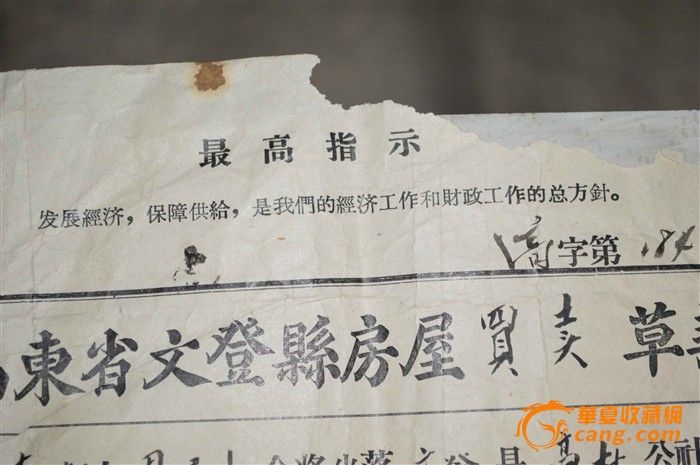 最高指示
发展經济，保障供給，是我們的經济工作和財政工作的总方針。
高字第184
東省文登縣房屋買卖草
月 公社
華夏收藏網
cang.com